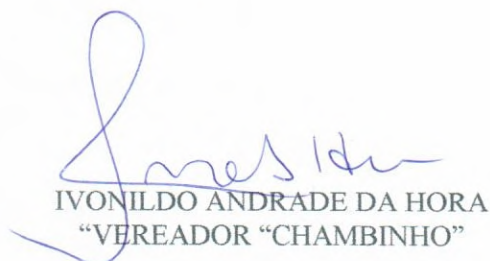 IVONILDO ANDRADE DA HORA
“VEREADOR “CHAMBINHO”